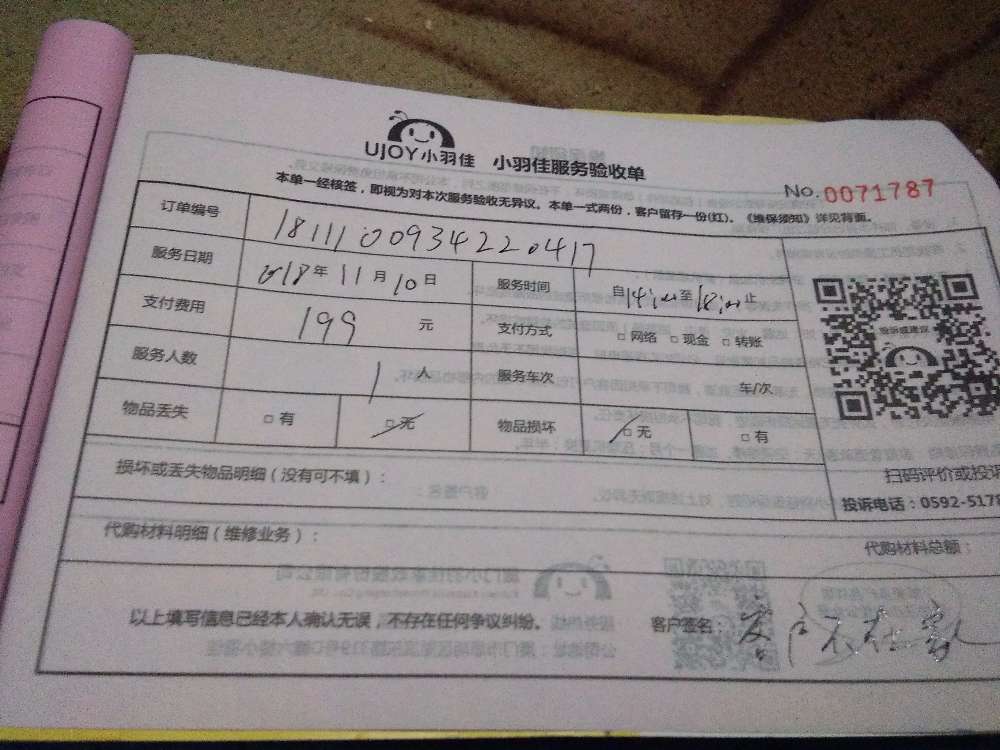 UJOY小羽佳 小羽佳服务验收单
No. 0071787
本单一经核签，即视为对本次服务验收无异议。本单一式两份，客户留存一份(红)。《维保须知》详见背面。
订单编号 1811100934220417
服务日期 2018年11月10日 服务时间 自14:00至18:00止
投诉或建议
支付费用 199 元 支付方式 □ 网络 □ 现金 □ 转账
服务人数 1 人 服务车次 车/次
物品丢失 □ 有 □ 无 物品损坏 □ 无 □ 有
损坏或丢失物品明细（没有可不填）：
扫码评价或投诉
投诉电话：0592-5178
代购材料明细（维修业务）：
代购材料总额：
以上填写信息已经本人确认无误，不存在任何争议纠纷。 客户签名：客户不在家